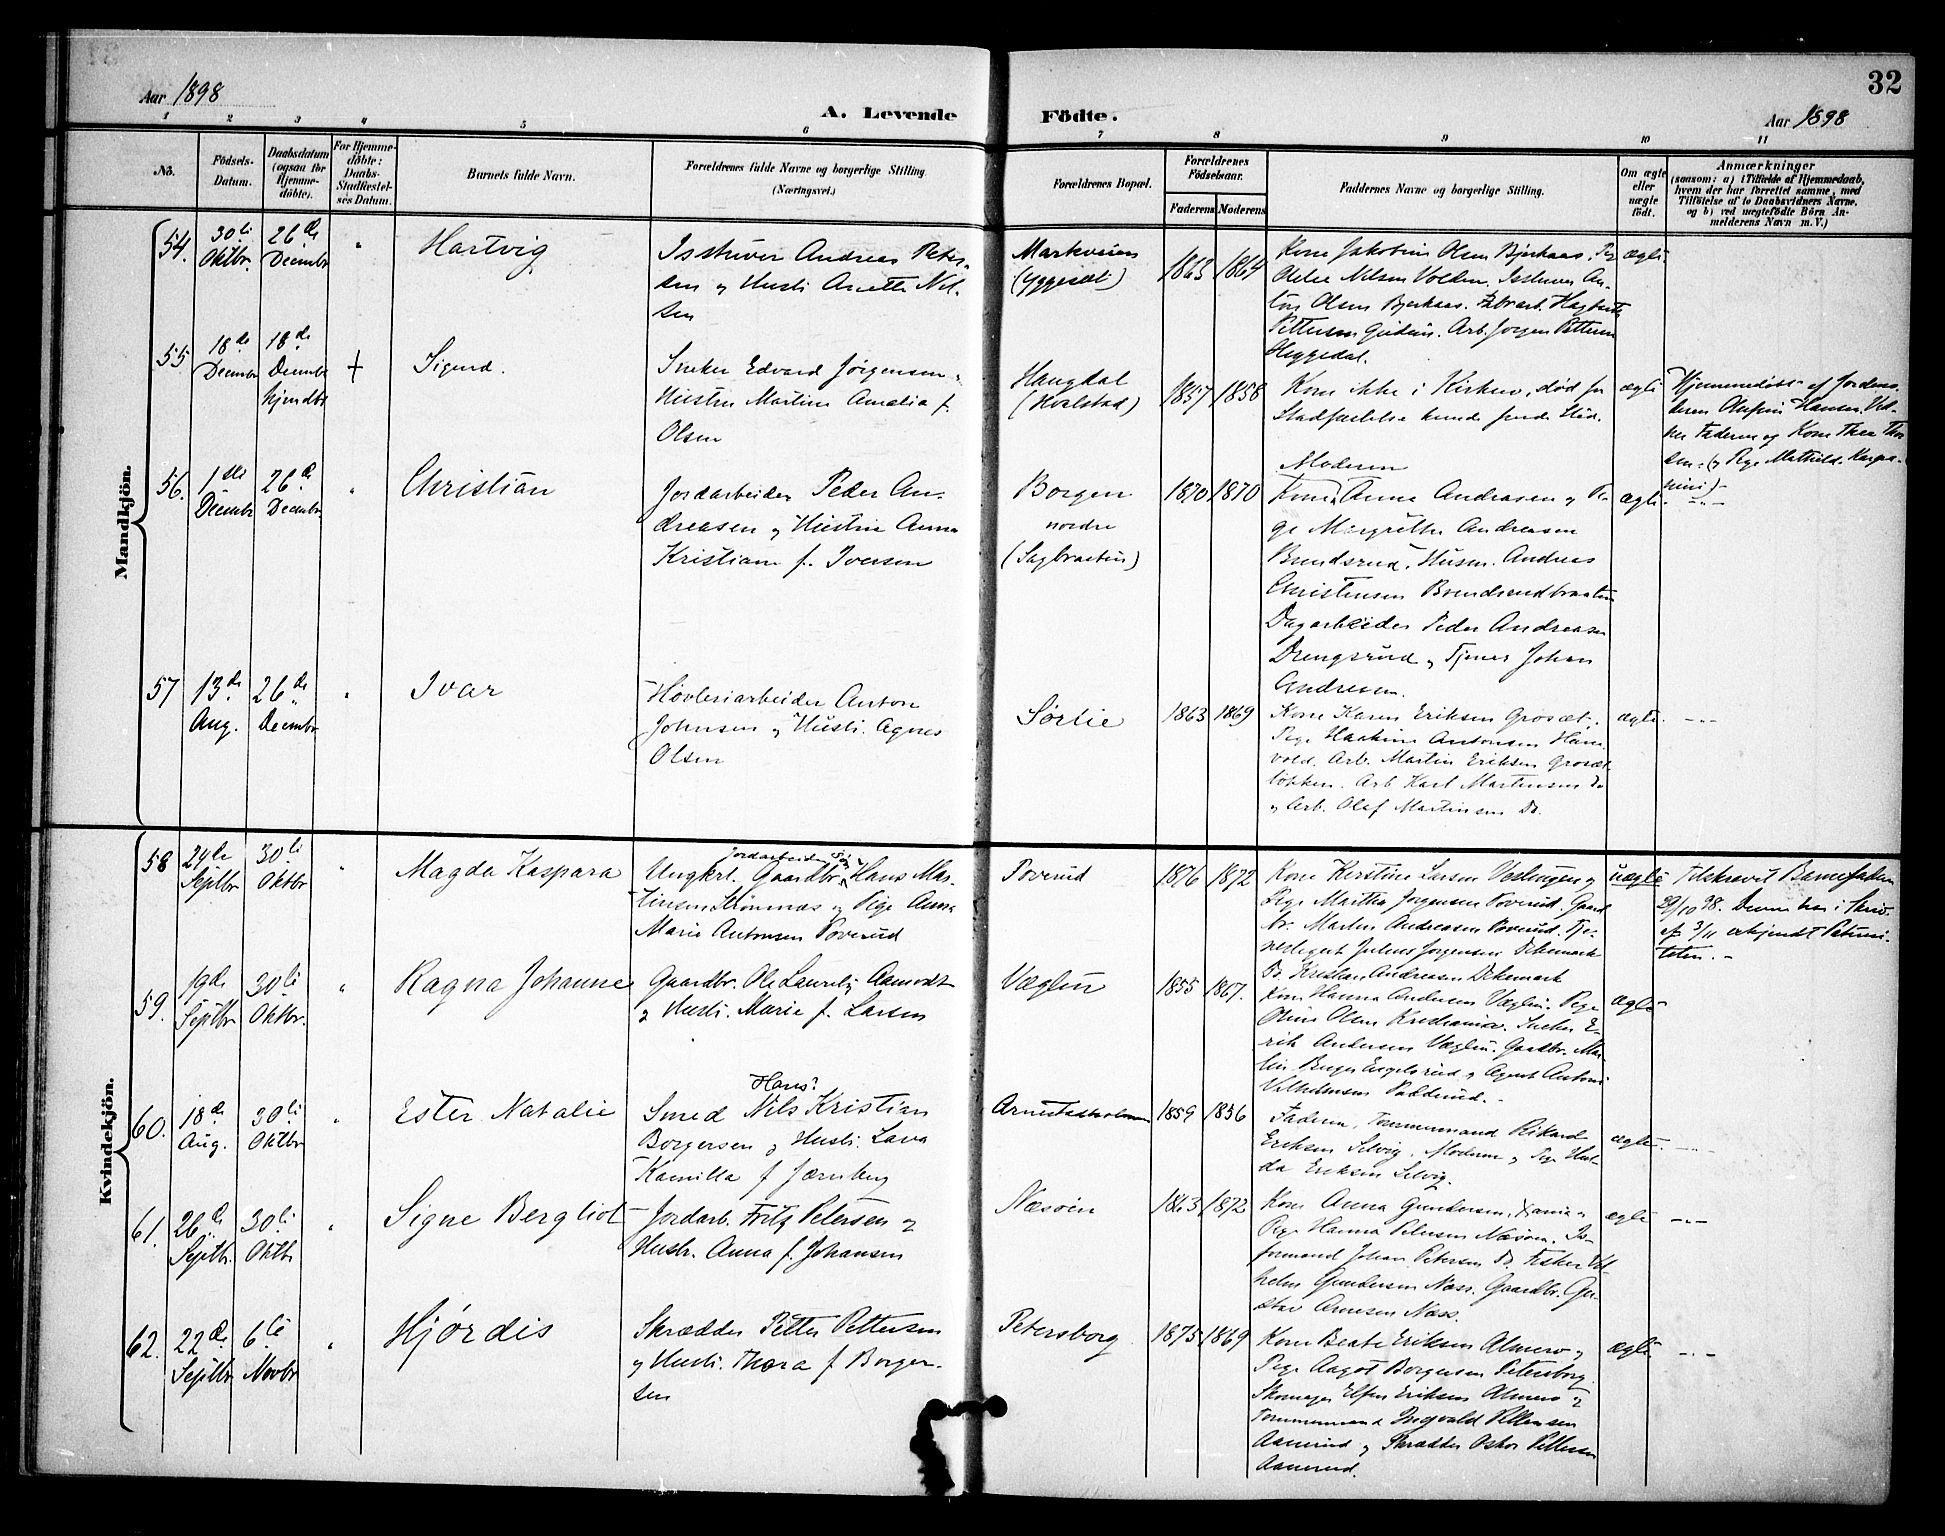 32
Aar 1898
A. Levende Födte.
Aar 1898
1 2 3 4 5 6 7 8 9 10 11
No.
Födsels-
Datum.
Daabsdatum
(ogsaa for
Hjemme-
döbte).
For Hjemme-
döbte:
Daabs-
Stadfæstel-
ses Datum.
Barnets fulde Navn.
Forældrenes fulde Navne og borgerlige Stilling
(Næringsvei.)
Forældrenes Bopæl.
Forældrenes
Födselsaar.
Faderens
Moderens
Faddernes Navne og borgerlige Stilling.
Om ægte
eller
uægte
födt.
Anmærkninger
(saasom: a) i Tilfælde af Hjemmedaab,
hvem der har forrettet samme, med
Tilföielse af to Daabsvidners Navne,
og b) ved uægtefödte Börn An-
melderens Navn m. V.)
Mandkjön.
54. 30te Oktbr. 26de Decembr " Hartvig
Isstuver Andreas Peter-
sen og Hustr. Anette Nil-
sen
Markveien
(Yggeset)
1863 1864
Kone Jakobine Olsen Bjerkaas, Pg
Nilsen Volden. Isstuver An-
ton Olsen Bjerkaas.
Pettersen Arb. Jørgen Pettersen
Heggedal.
ægte.
55 18de Decembr 18de Decembr hjemdbt + Sigurd.
Sneker Edvard Jørgensen
Hustru Martine Amalia f.
Olsen
Haugdal
(Hvalstad)
1857 1858
Kom ikke i Kirken, død før
Stadfæstelse kunde finde Sted.
ægte
Hjemmedøbt af Jordmo-
deren Hansen. Vid-
ner Faderen og Kone Thea Thor
sen. (og Pige Mathild.
56. 1ste Decembr 26de Decembr " Christian
Jordarbeider Peder An-
dreasen og Hustru Anna
Kristiane f. Iversen
Borgen
nordre
(Sagbraaten)
1870 1870
Moderen
Kone Anna Andreasen og Pi-
ge Margrethe Andreasen
Brendsrud. Husm. Andreas
Christensen Brendsrudbraaten
Dagarbeider Peder Andreasen
Drengsrud og Tjener Johan
Andresen.
ægte. -"-
57 13de Aug. 26de Decembr " Ivar
Høvleriarbeider Anton
Johnsen og Hustr. Agnes
Olsen
Sørlie
1863 1869
Kone Karen Eriksen Grosæt.
Pige Haakine Antonsen
vold. Arb. Martin Eriksen Grosæt
løkken. Arb. Karl Martinsen Do
og Arb. Olaf Martinsen Do.
ægte. -"-
Kvindekjön.
58 24de Septbr 30te Oktbr " Magda Kaspara
Jordarbeider Søn
Ungkrl. Gaardbr. Hans Mar-
tinsen Strømnæs og Pige Anna
Marie Antonsen Poverud
Poverud
1876 1872
Kone Kerstine Larsen og
Pige Martha Jørgensen Poverud. Gaard
br. Martin Andreasen Poverud. Tje-
nestegut Julius Jørgensen Dikemark
Do Kristian Andreasen Dikemark
uægte
Tilskrevet
29/10 98. Denne har i Skriv.
af 3/11 erkjendt Paterni-
teten.-
59. 19de Septbr 30te Oktbr. " Ragna Johanne
Gaardbr. Ole Lauritz Aamodt
og Hustr. Marie f. Larsen
Væglen
1855 1867.
Kone Hanna Andersen Væglen. Pige
Oline Olsen Kristiania. Sneker E-
rik Andersen Væglen. Gaardbr. Mar-
tin og Agent Anton
Vilhelmsen
ægte
60. 18de Aug. 30te Oktbr " Ester Natalie
Hans?
Smed Nils Kristian
Borgersen og Hustr. Lava
Kamilla f. Jarnberg
Arnestadholmen
1859 1856
Faderen, Tømmermand Rikard
Eriksen Selvig. Moderen og Pige Hul-
da Eriksen Selvig.
ægte. -"-
61. 26de Septbr. 30te Oktbr " Signe Bergliot
Jordarb. Fritz Petersen og
Hustr. Anna f. Johansen
Næsøen
1843 1872
Kone Anna Gundersen, og
Pige Hanna Petersen Næsøen. Is-
formand Johan Petersen Do. Fisker Vil-
helm Gundersen Næss. Gaardbr. Gu-
stav Arnesen Næss.
ægte -"-
62. 22de Septbr 6te Novbr " Hjørdis
Skrædder Petter Pettersen
og Hustr. Thora f. Borger-
sen
Petersborg
1875 1869
Kone Beate Eriksen Almero og
Pige Aagot Borgersen Petersborg.
Skomager Elfen Eriksen Almero og
Tømmermand Ingvald Pettersen
Aamerud og Skrædder Oskar Pettersen
Aamerud.
ægte. -"-